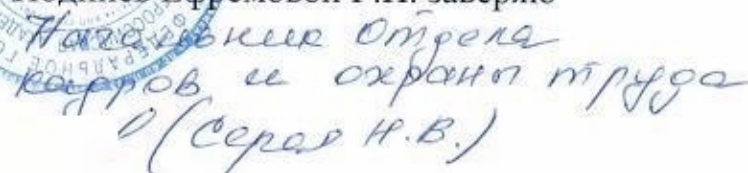 Подпись Ефремовой Г.И. заверяю
Начальник Отдела
кадров и охраны труда
(Серая Н.В.)